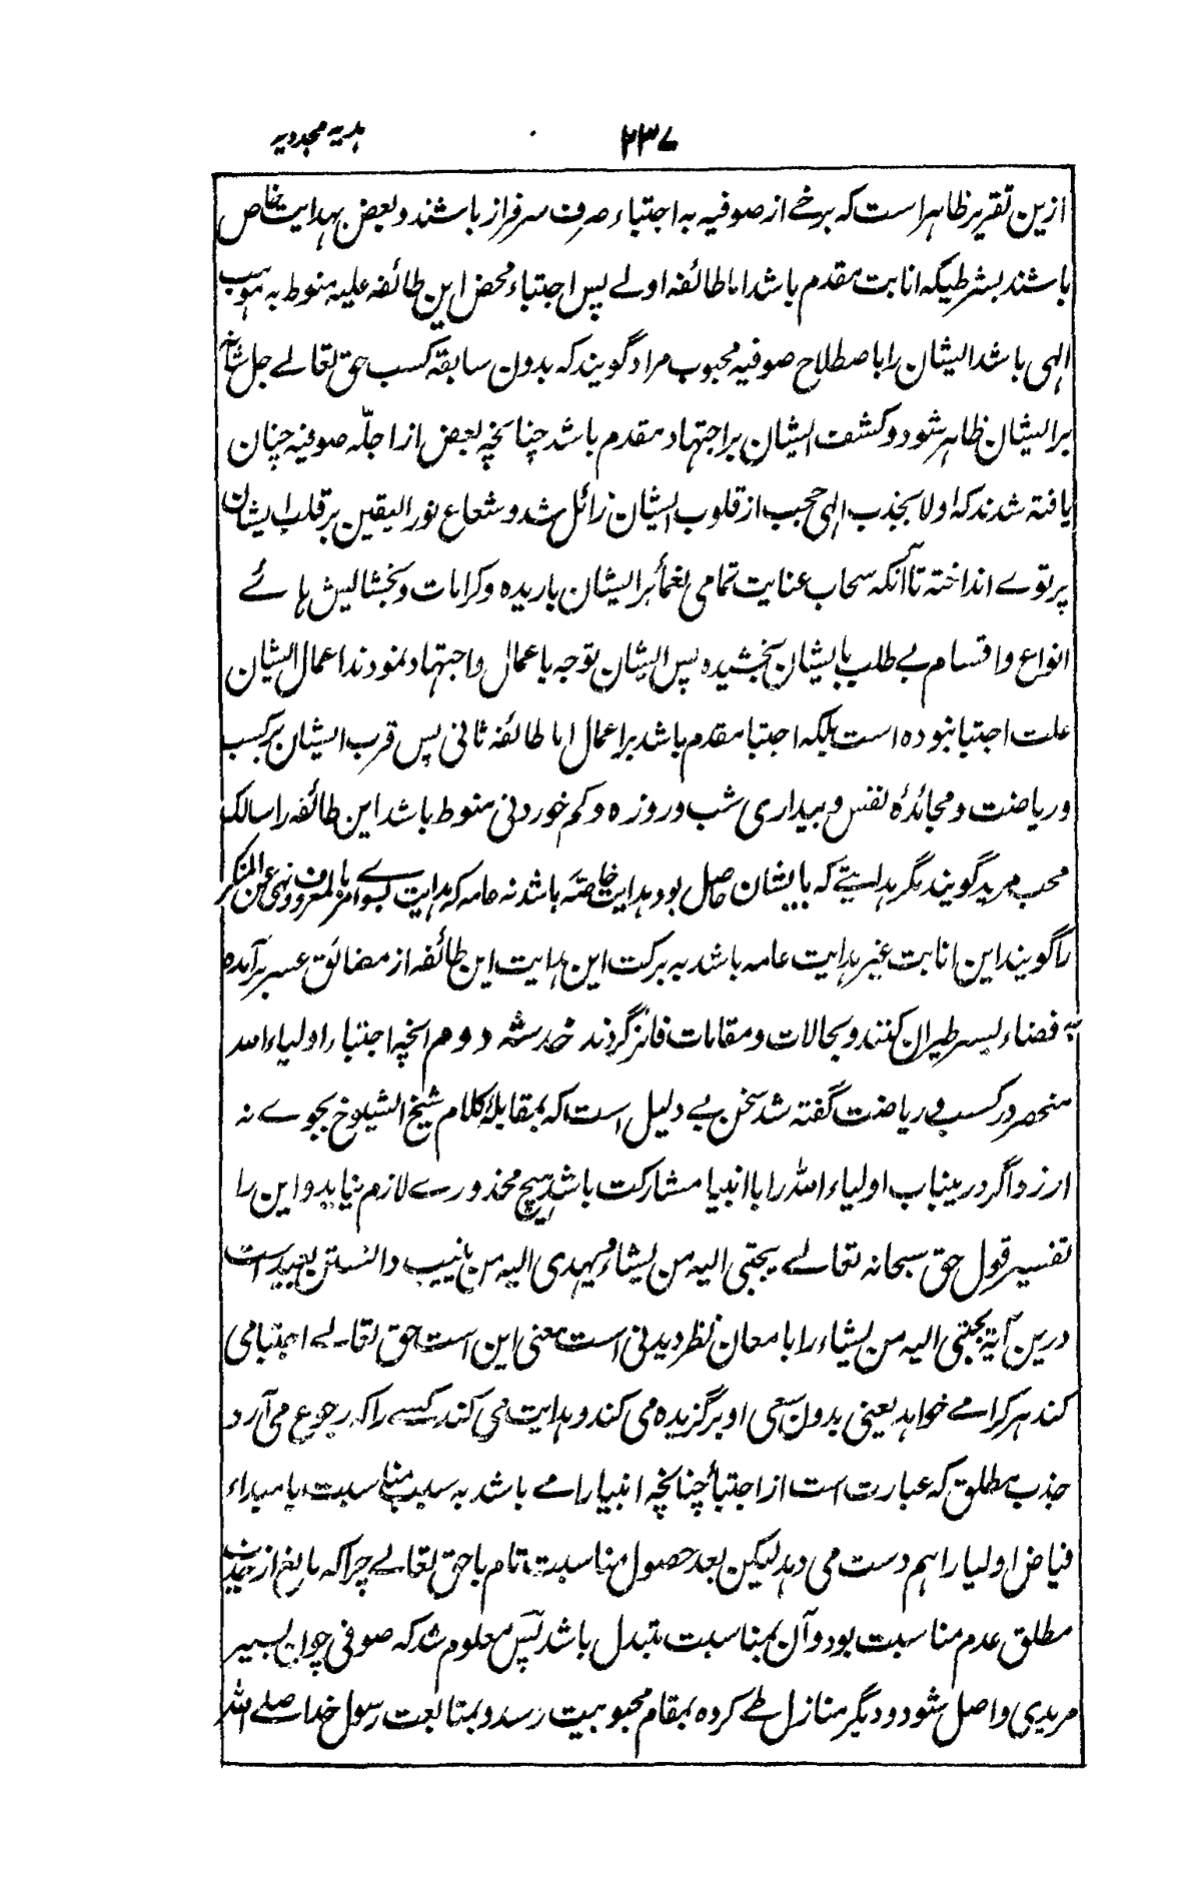 ۲۳۷
ہدیہ مجددیہ
ازین تقریر ظاہر است کہ برخے از صوفیہ بہ اجتباء صرف سرفراز باشند و بعض بہدایت خاص
باشند بشرطیکہ انابت مقدم باشد اما طائفہ اولے پس اجتباء محض این طائفہ علیہ منوط بہ موہبت
الہی باشد ایشان را باصطلاح صوفیہ محبوب مراد گویند کہ بدون سابقۂ کسب حق تعالے جل شانہ
بر ایشان ظاہر شود و کشف ایشان بر اجتہاد مقدم باشد چنانچہ بعض از اجلّہ صوفیہ چنان
یافتہ شدند کہ اولا بجذب الہی حجب از قلوب ایشان زائل شد و شعاع نور الیقین بر قلب ایشان
پرتوے انداختہ تا آنکہ سحاب عنایت تمامی نعما بر ایشان باریدہ و کرامات و بخشایش ہائے
انواع و اقسام بے طلب بایشان بخشیدہ پس ایشان توجہ باعمال و اجتہاد نمودند اعمال ایشان
علت اجتبا نبودہ است بلکہ اجتبا مقدم باشد بر اعمال اما طائفہ ثانی پس قرب ایشان بر کسب
و ریاضت و مجائدۂ نفس و بیداری شب و روزہ و کم خوردنی منوط باشد این طائفہ را سالک
محب مرید گویند مگر ہدایتے کہ بایشان حاصل بود ہدایت خاصّہ باشد نہ عامہ کہ ہدایت بسوے امر بالمعروف و نہی عن المنکر
را گویند این انابت غیر ہدایت عامہ باشد بہ برکت این ہدایت این طائفہ از مضائق عسر برآمدہ
بہ فضاء یسر طیران کنند و بحالات و مقامات فائز گردند خدشہ دوم آنچہ اجتباء اولیاء اللہ
منحصر در کسب و ریاضت گفتہ شد سخن بے دلیل است کہ بمقابلۂ کلام شیخ الشیوخ بجوے نہ
ارزد و اگر درینباب اولیاء اللہ را با انبیا مشارکت باشد ہیچ محذورے لازم نیاید و این را
تفسیر قول حق سبحانہ تعالے یجتبی الیہ من یشاء و یہدی الیہ من ینیب دانستن بعید است
درین آیۃ یجتبی الیہ من یشاء را بامعان نظر دیدنی است معنی این است حق تعالے اجتبا می
کند ہر کرا مے خواہد یعنی بدون سعی او برگزیدہ می کند و ہدایت می کند کسے را کہ رجوع می آرد
جذب مطلق کہ عبارت است از اجتباء چنانچہ انبیا را مے باشد بہ سبب مناسبت بامبداء
فیاض اولیا را ہم دست می دہد لیکن بعد حصول مناسبت تام با حق تعالے چرا کہ مانع از جذب
مطلق عدم مناسبت بود و آن بمناسبت متبدل باشد پس معلوم شد کہ صوفی چون بسیر
مریدی واصل شود و دیگر منازل طے کردہ بمقام محبوبیت رسد و بمتابعت رسول خدا صلے اللہ